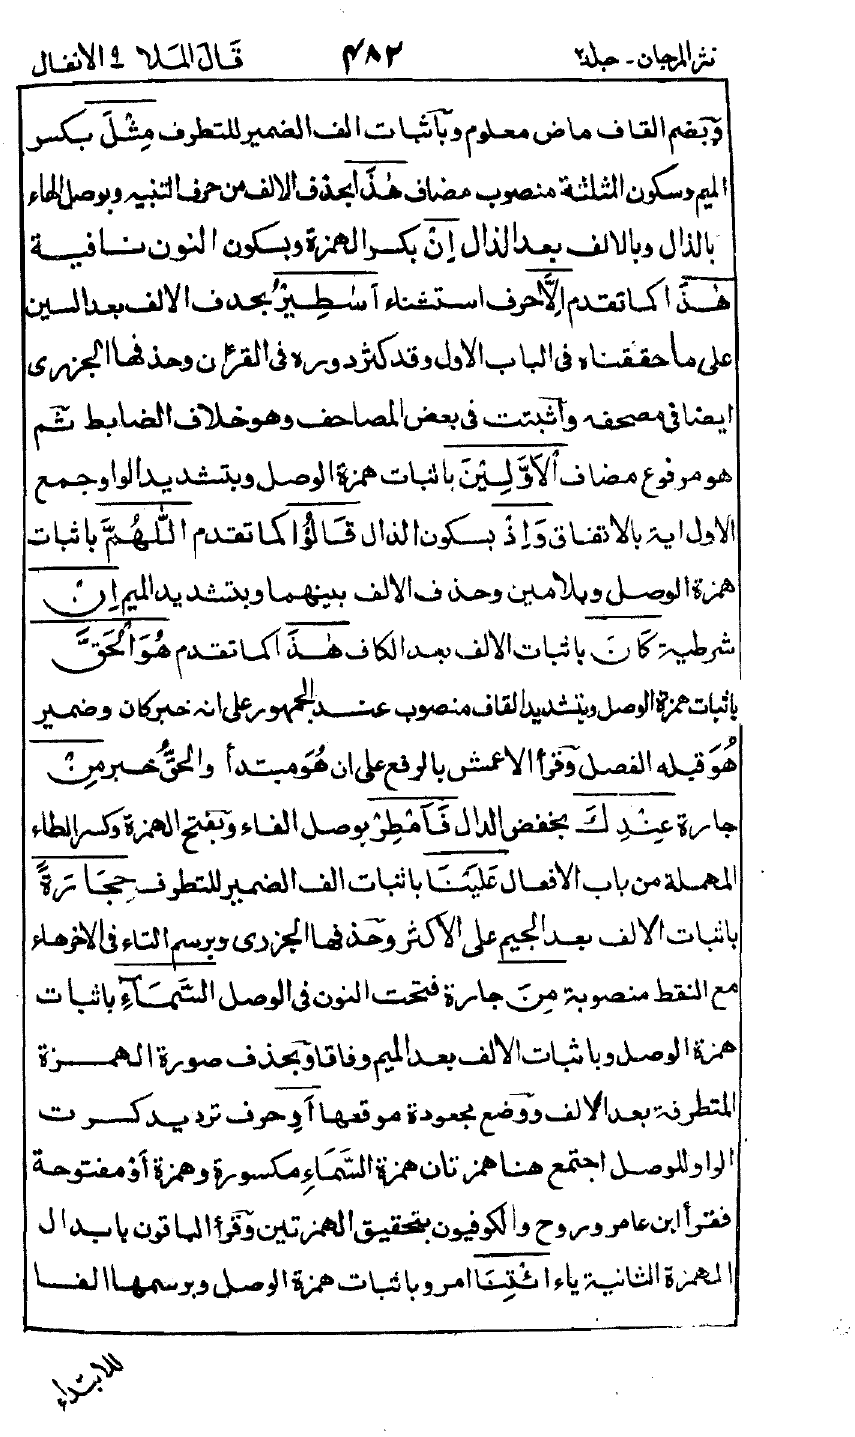 نثر المرجان - جلد ٢ ٤٨٢ قَالَ المَلَا ٩ الانفال
وَبضم القاف ماض معلوم وبآثبات الف الضمير للتطرف مِثْلَ بكسر
الميم وسكون المثلثة منصوب مضاف هٰذَا بحذف الالف من حرف التنبيه وبوصل الهاء
بالذال وبالالف بعد الذال اِنْ بكسر الهمزة وبسكون النون نافية
هٰذَا كما تقدم اِلَّا حرف استثناء اَسٰطِيْرُ بحذف الالف بعد السين
على ما حققناه فى الباب الاول وقد كثر دوره فى القرآن وحذفها الجزرى
ايضا فى مصحفه وآثبتت فى بعض المصاحف وهو خلاف الضابط ثم
هو مرفوع مضاف الْاَوَّلِيْنَ باثبات همزة الوصل وبتشديد الواو جمع
الاول اية بالاتفاق وَاِذْ بسكون الذال قَالُوْا كما تقدم اللّٰهُمَّ باثبات
همزة الوصل وبلامين وحذف الالف بينهما وبتشديد الميم اِنْ
شرطية كَانَ باثبات الالف بعد الكاف هٰذَا كما تقدم هُوَ الْحَقَّ
باثبات همزة الوصل وبتشديد القاف منصوب عند الجمهور على انه خبر كان وضمير
هُوَ قبله الفصل وَقرأ الاعمش بالرفع على ان هُوَ مبتدأ والحقُّ خبر مِنْ
جارة عِنْدِكَ بخفض الدال فَاَمْطِرْ بوصل الفاء وَبفتح الهمزة وكسر الطاء
المهملة من باب الافعال عَلَيْنَا باثبات الف الضمير للتطرف حِجَارَةً
باثبات الالف بعد الجيم على الاكثر وحذفها الجزرى وبرسم التاء فى الاخر هاء
مع النقط منصوبة مِنَ جارة فتحت النون فى الوصل السَّمَآءِ باثبات
همزة الوصل وباثبات الالف بعد الميم وفاقا وَبحذف صورة الهمزة
المتطرفة بعد الالف ووضع مجعودة موقعها اَوِ حرف ترديد كسرت
الواو للوصل اجتمع هنا همزتان همزة السَّمَاءِ مكسورة وهمزة اَوْ مفتوحة
فقرأ ابن عامر وروح والكوفيون بتحقيق الهمزتين وَقرأ الباقون بابدال
الهمزة الثانية ياء ائْتِنَا امر وباثبات همزة الوصل وبرسمها الفا
للابتداء